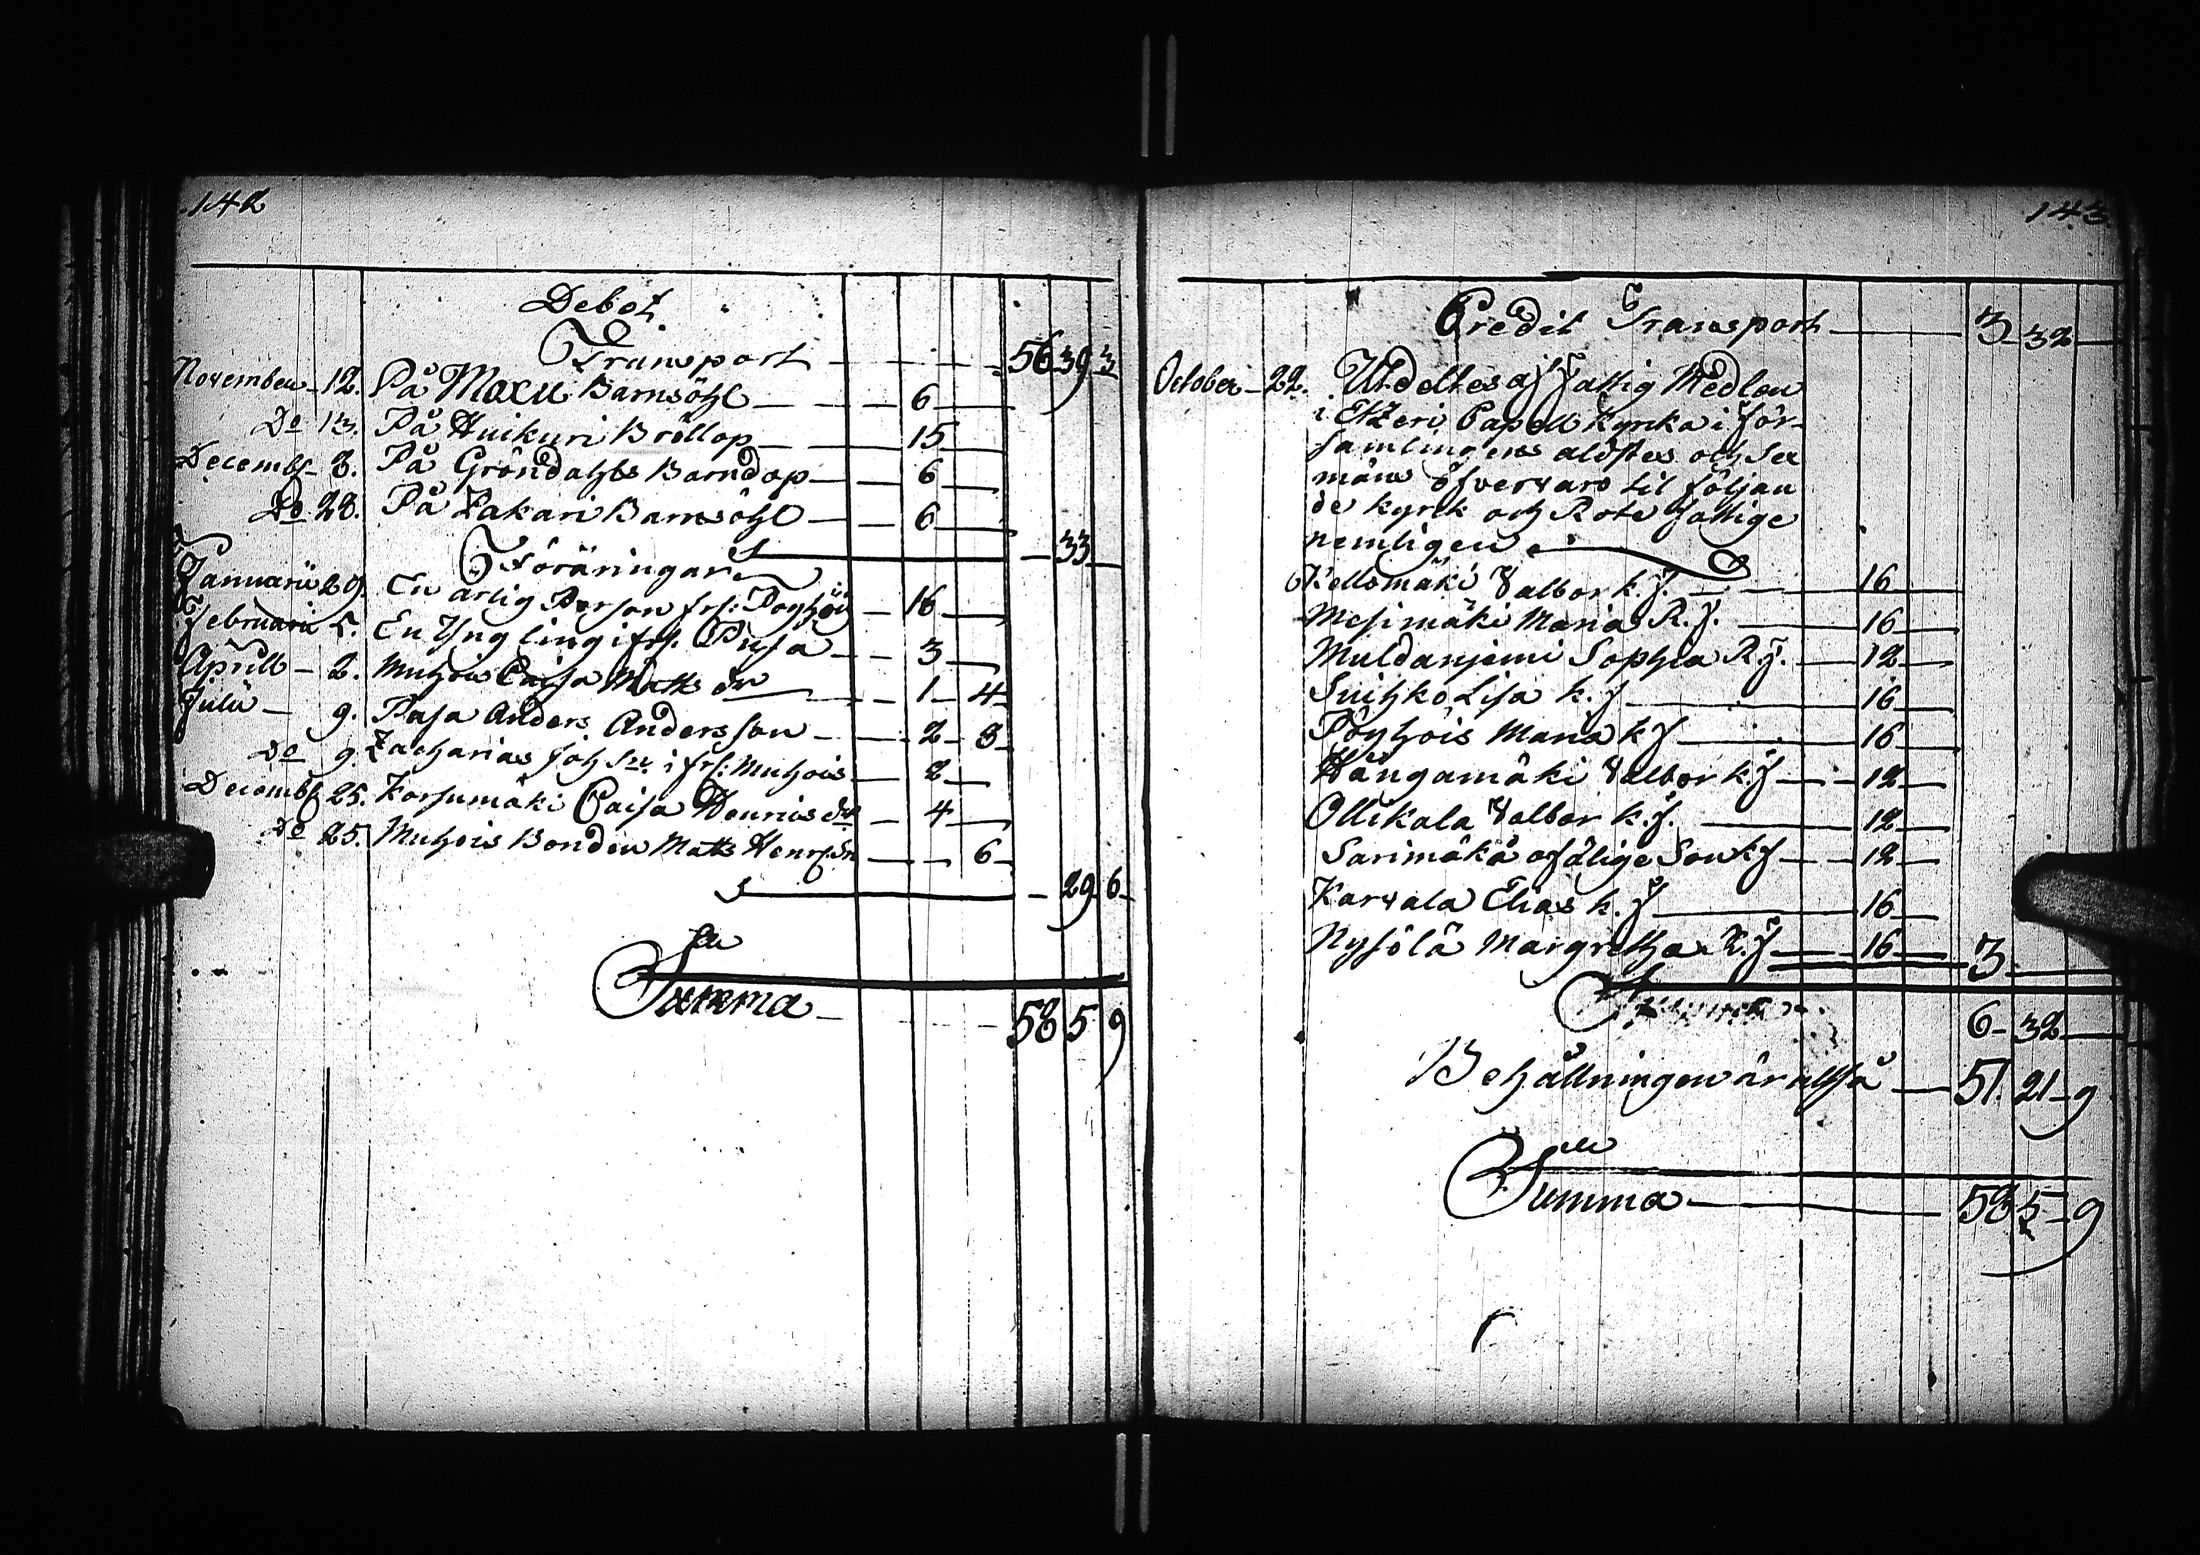 142
Debet
Transport — 56 39 3
November 12. På Maxu Barnsöhl — 6
Do 13. På Huikuri Bröllop — 15
Decembr 8. På Gröndahls Barndop — 6
Do 28. På Zakari Barnsöhl — 6
— 33 —
Föräringar
Januarii 29. En ärlig Person frf: Pöyhöis — 16
Februarii 5. En Yngling i frf. Pusa — 3
Aprill — 2. Muhois Caisa Matts dr — 1 — 4
Julii — 9. Pasa Anders Andersson — 2 — 8
Do 9. Zacharias Joh Sn. i frf: Muhois — 2
Decembr 25. Korsumäki Caisa Henrics dr — 4
Do 25. Muhois Bonden Matts Henrs. Sn — 6
— 29 6
Summa — 58 5 9
143
Credit Transport — 3 32
October 22. Utdeltes af Fattig Medlen
i Etzeri Capell Kyrka i För-
samlingens äldstes och Sex
mäns öfvervaro til följan
de kyrk och Rote fattige
nemligen
Kellomäki Valbor k. f. — 16
Mesimäki Maria R. f. — 16
Muldanjemi Sophia R f. — 12
Suihko Lisa k. f — 16
Pöyhöis Maria k f — 16
Hångamäki Valbor k. f — 12
Ollikala Valbor k. f. — 12
Sarimäkä ofälige Son k f — 12
Karvala Elias k. f — 16
Nysölä Margretha k. f — 16 — 3
Summa 6 — 32
Behållningen är altså — 51. 21 — 9
Summa — 58 5 — 9